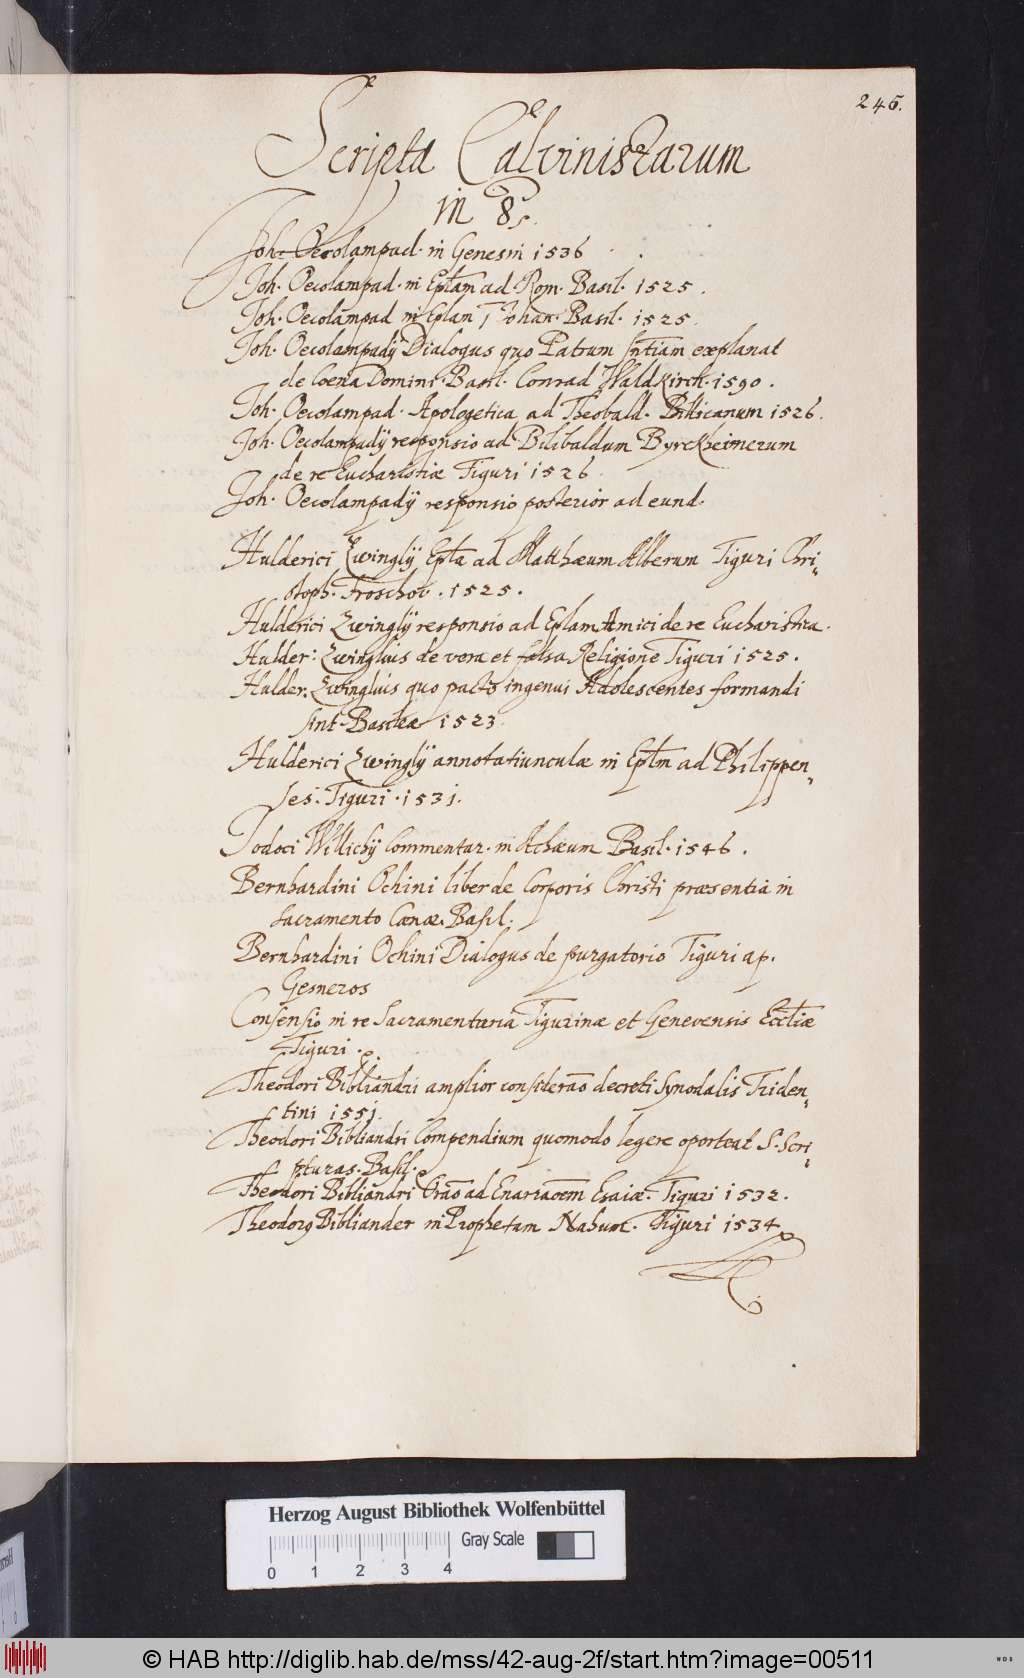 246.
Scripta Calvinistarum
in 8°.
Joh. Oecolampad. in Genesin 1536
Joh. Oecolampad. in Eplam ad Rom. Basil. 1525.
Joh. Oecolampad in Eplan 1 Johan. Basil. 1525.
Joh. Oecolampadij Dialogus quo Patrum sntiam explanat
de Coena Domini. Basil. Conrad Waldkirch. 1590.
Joh. Oecolampad. Apologetica ad Theobald. Billicanum 1526.
Joh. Oecolampadij responsio ad Bilibaldum Byrckheimerum
de re Eucharistiæ Tiguri 1526
Joh. Oecolampadij responsio posterior ad eund.
Hulderici Zwinglij Epla ad Matthæum Alberum Tiguri Chri-
stoph. Froschov. 1525.
Hulderici Zwinglij responsio ad Eplam Amici de re Eucharistia.
Hulder: Zwinglius de vera et falsa Religione Tiguri 1525.
Hulder. Zwinglius quo pacto ingenui Adolescentes formandi
sint Basileæ 1523.
Hulderici Zwinglij annotatiunculæ in Eplm ad Philippen-
ses. Tiguri. 1531.
Jodoci Willichij Commentar. in Achæum Basil. 1546.
Bernhardini Ochini liber de Corporis Christi præsentia in
sacramento Cœnæ. Basil.
Bernhardini Ochini Dialogus de purgatorio Tiguri ap.
Gesneros
Consensio in re Sacramentaria Tigurinæ et Genevensis Eccliæ
Tiguri.
Theodori Bibliandri amplior consiterao decreti Synodalis Triden-
tini 1551.
Theodori Bibliandri Compendium quomodo legere oporteat S. Scri-
pturas. Basil.
Theodori Bibliandri Orao ad Enariaoem Esaiæ. Tiguri 1532.
Theodorg Bibliander in Prophetam Nahum. Tiguri 1534.
Herzog August Bibliothek Wolfenbüttel
Gray Scale
0 1 2 3 4
© HAB http://diglib.hab.de/mss/42-aug-2f/start.htm?image=00511